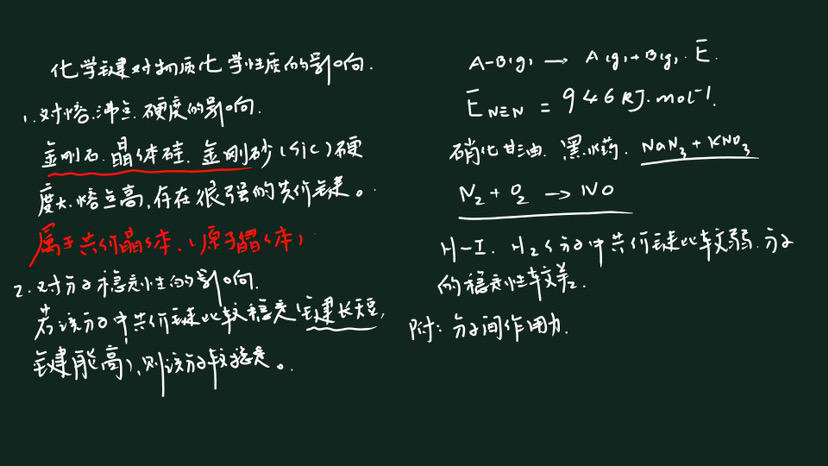 化学键对物质化学性质的影响.
1.对熔.沸点.硬度的影响.
金刚石.晶体硅.金刚砂(SiC)硬
度大.熔点高,存在很强的共价键。
属于共价晶体.(原子晶体)
2.对分子稳定性的影响.
若该分子中共价键比较稳定(键长短,
键能高),则该分子较稳定。
A-B(g) → A(g)+B(g) . E.
E N≡N = 946 KJ·mol⁻¹.
硝化甘油. 黑火药. NaN₃+KNO₃
N₂ + O₂ → NO
H-I. H₂S分子中共价键比较弱.分子
的稳定性较差.
附:分子间作用力.